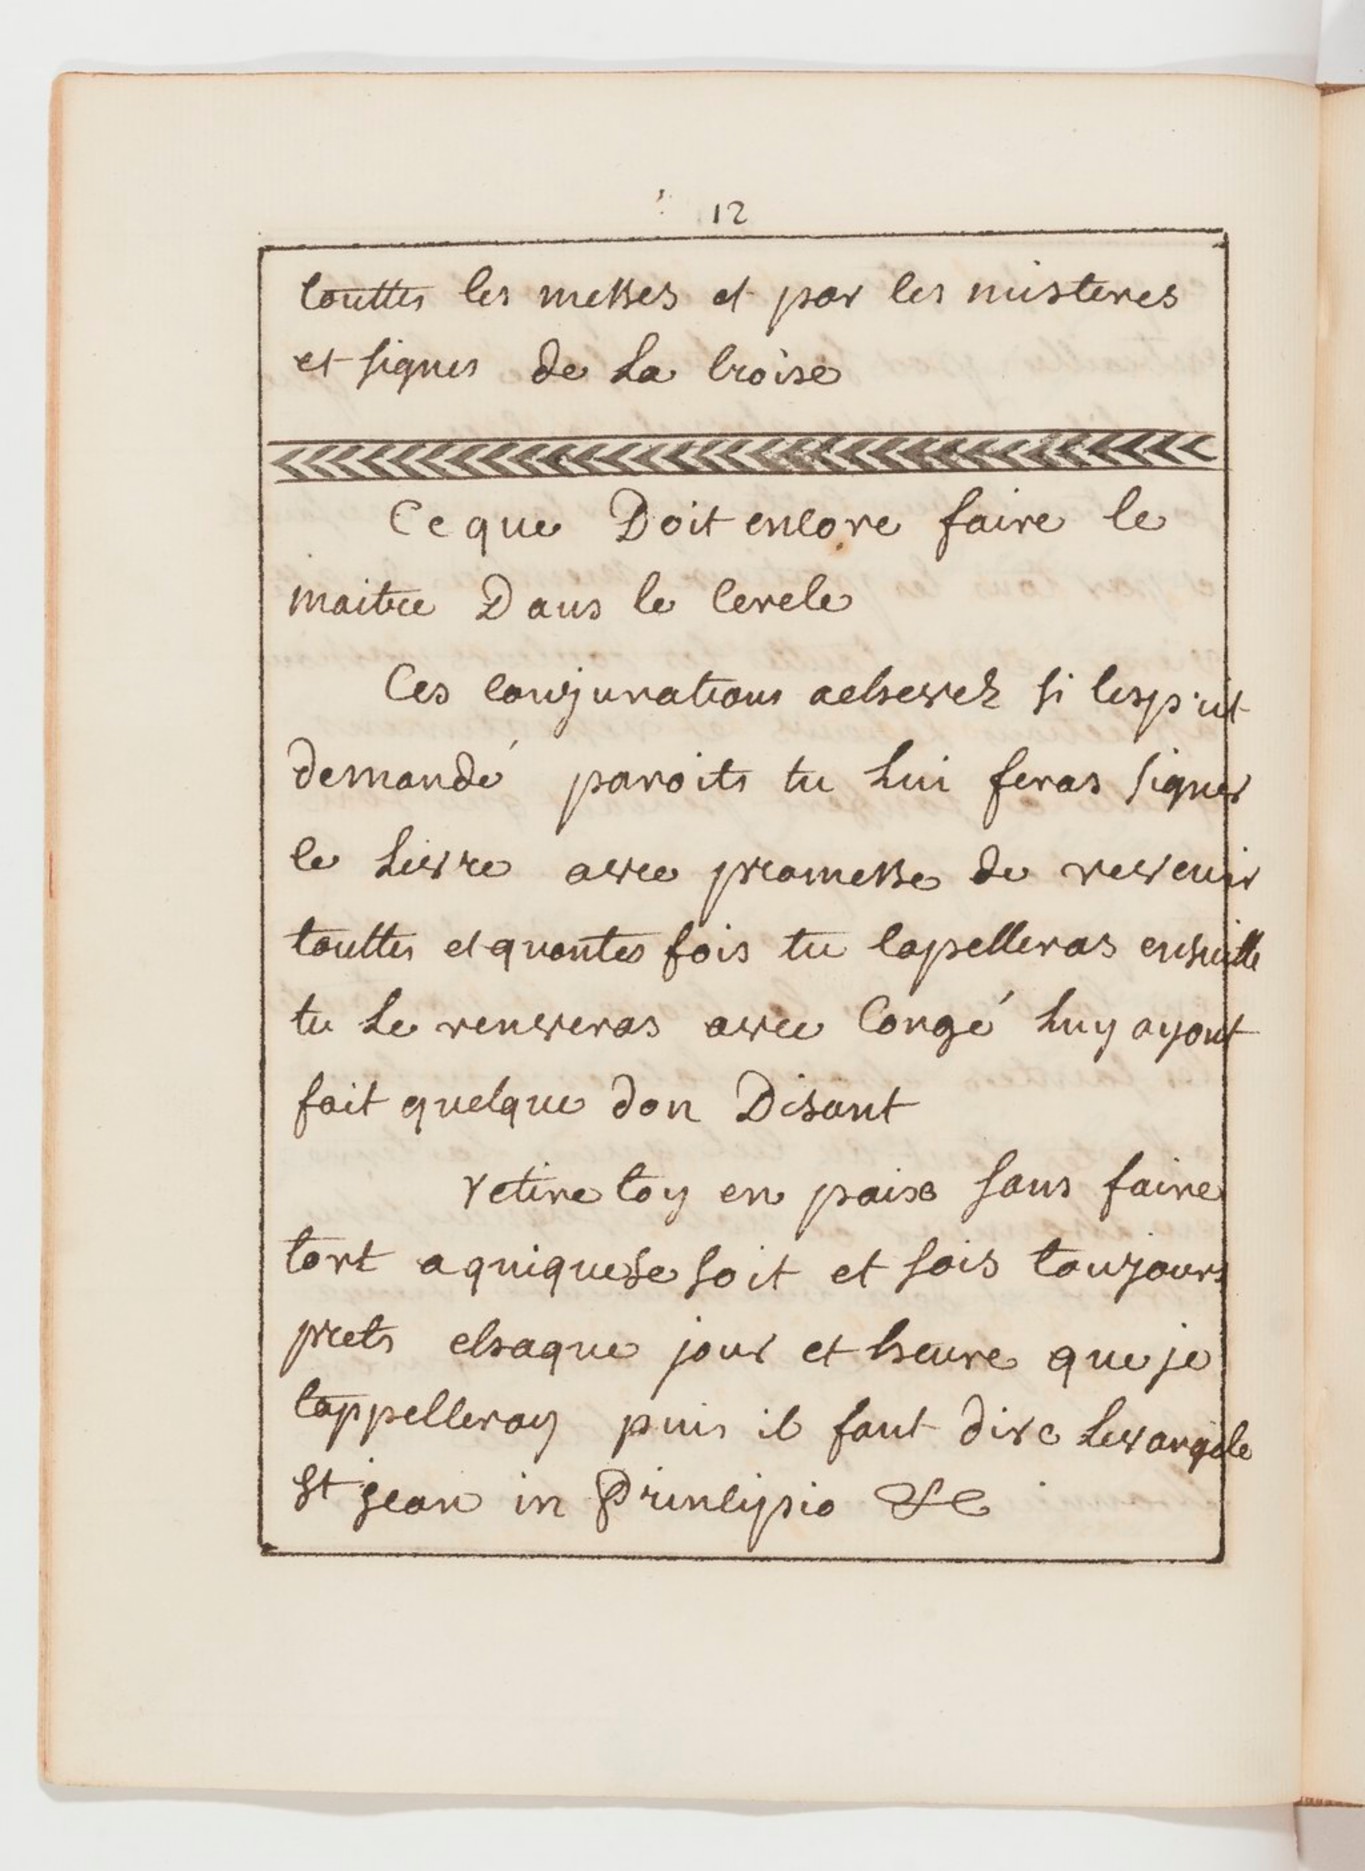 12
touttes les messes et par les misteres
et signes de la croise
Ce que Doit encore faire le
maitre Dans le cercle
Ces conjurations achevez si lesprit
demandé paroits tu lui feras signer
le livre avec promesse de revenir
touttes et quantes fois tu lapelleras ensuitte
tu le renveras avec Congé luy ayant
fait quelque don Disant
retire toy en paise sans faire
tort a quiquese soit et sois toujours
prets chaque jour et heure que je
tappelleray puis il faut dire levangile
St jean in Principio &c